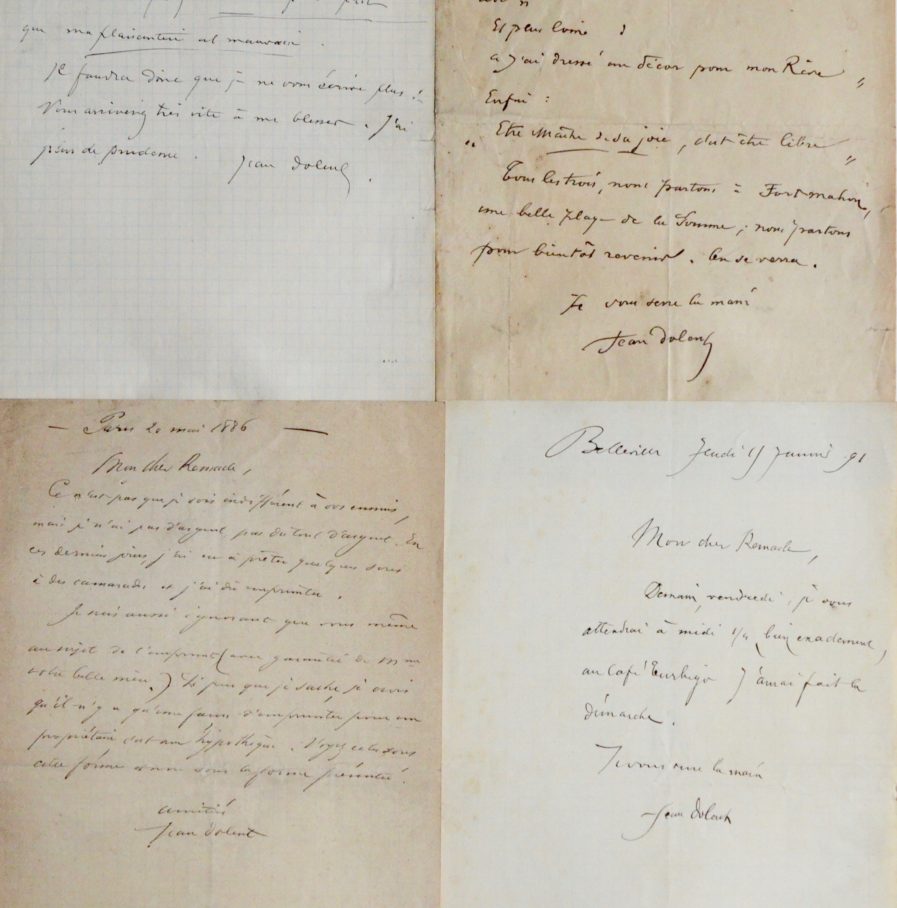 que ma plaisanterie est mauvaise.
Il faudra donc que je ne vous écrive plus !
Vous arriverez très vite à me blesser. J'ai
peur de prudence.
Jean Dolent.
Et plus loin :
a J'ai dressé un décor pour mon Rêve "
Enfin :
" Etre Maître de sa joie, c'est être libre "
Tous les trois, nous partons à Fort-mahon,
une belle plage de la Somme ; nous partons
pour bientôt revenir. On se verra.
Je vous serre la main
Jean Dolent
— Paris 20 mai 1886 —
Mon cher Remacle,
Ce n'est pas que je sois indifférent à vos ennuis,
mais je n'ai pas d'argent, pas du tout d'argent. En
ces derniers jours, j'ai eu à prêter quelques sous
à des camarades et j'ai dû emprunter.
Je suis aussi ignorant que vous même
au sujet de l'emprunt (avec garantie de Mme
votre belle mère.) Le peu que je sache, je crois
qu'il n'y a qu'une façon d'emprunter pour un
propriétaire c'est une hypothèque. Voyez cela sous
cette forme ou sous la forme présentée.
amitiés
Jean Dolent
Belleville Jeudi 15 Janvier 91
Mon cher Remacle,
Demain, vendredi, je vous
attendrai à midi 1/4 bien exactement,
au Café Turbigo J'aurai fait la
démarche.
Je vous serre la main
Jean Dolent